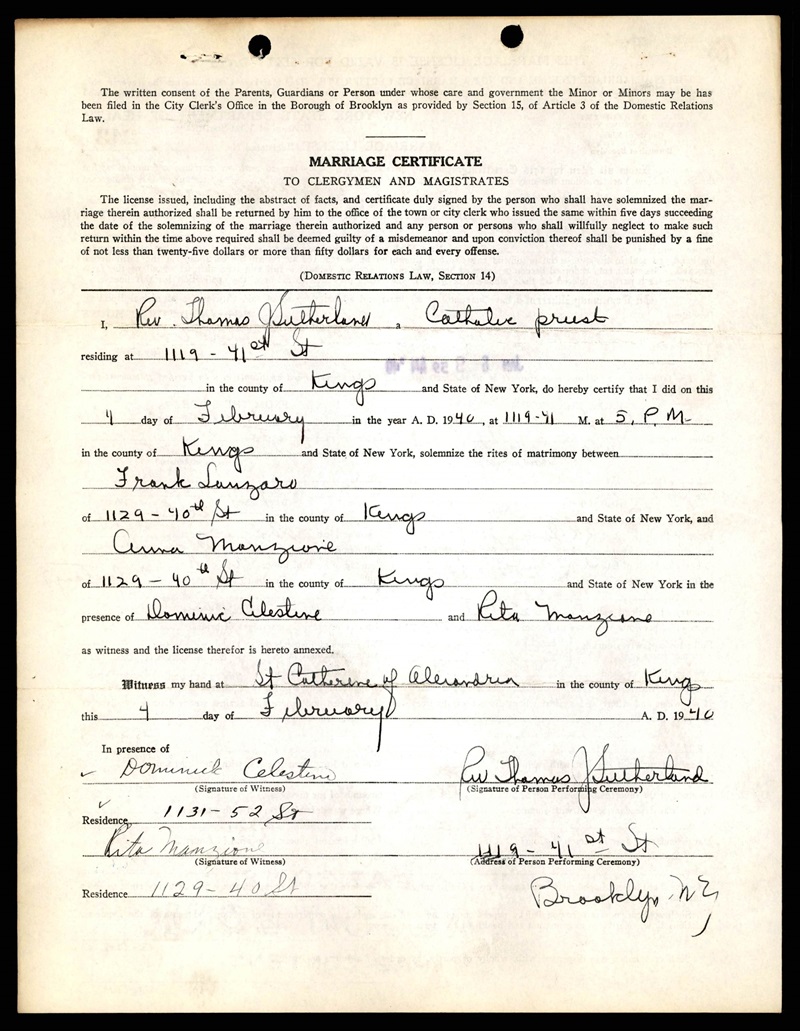 The written consent of the Parents, Guardians or Person under whose care and government the Minor or Minors may be has
been filed in the City Clerk's Office in the Borough of Brooklyn as provided by Section 15, of Article 3 of the Domestic Relations
Law.
MARRIAGE CERTIFICATE
TO CLERGYMEN AND MAGISTRATES
The license issued, including the abstract of facts, and certificate duly signed by the person who shall have solemnized the mar-
riage therein authorized shall be returned by him to the office of the town or city clerk who issued the same within five days succeeding
the date of the solemnizing of the marriage therein authorized and any person or persons who shall willfully neglect to make such
return within the time above required shall be deemed guilty of a misdemeanor and upon conviction thereof shall be punished by a fine
of not less than twenty-five dollars or more than fifty dollars for each and every offense.
(DOMESTIC RELATIONS LAW, SECTION 14)
I, Rev. Thomas J Sutherland a Catholic priest
residing at 1119 - 41st St
in the county of Kings and State of New York, do hereby certify that I did on this
4 day of February in the year A. D. 1940, at 1119-41 M. at 5, P.M.
in the county of Kings and State of New York, solemnize the rites of matrimony between
Frank Lanzaro
of 1129 - 40th St in the county of Kings and State of New York, and
Anna Manzione
of 1129 - 40th St in the county of Kings and State of New York in the
presence of Dominic Celestine and Rita Manzione
as witness and the license therefor is hereto annexed.
Witness my hand at St Catherine of Alexandria in the county of Kings
this 4 day of February A. D. 1940
In presence of
Dominick Celestine Rev Thomas J Sutherland
(Signature of Witness) (Signature of Person Performing Ceremony)
Residence 1131-52 St
Rita Manzione 1119 - 41st St
(Signature of Witness) (Address of Person Performing Ceremony)
Residence 1129-40 St Brooklyn, N Y